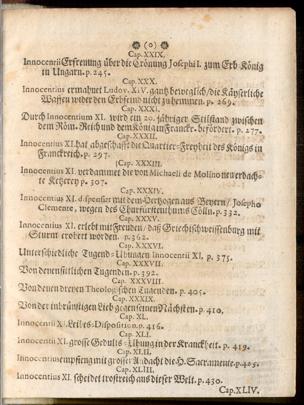 (o)
Cap. XXIX.
Innocentii Erfreuung über die Crönung Josephi I. zum Erb-König
in Ungarn. p. 245.
Cap. XXX.
Innocentius ermahnet Ludov. XIV. gantz beweglich / die Käyserliche
Waffen wider den Erbfeind nicht zu hemmen. p. 269.
Cap. XXXI.
Durch Innocentium XI. wird ein 20. jähriger Stillstand zwischen
dem Röm. Reich und dem König in Franckr. befördert. p. 277.
Cap. XXXII.
Innocentius XI. hat abgeschafft die Quartier-Freyheit des Königs in
Franckreich. p. 297.
Cap. XXXIII.
Innocentius XI. verdammet die von Michaeli de Molino neu erdach-
te Ketzerey p. 307.
Cap. XXXIV.
Innocentius XI. dispensirt mit dem Hertzogen aus Beyern / Josepho
Clemente, wegen des Churfürstenthums Cölln. p. 332.
Cap. XXXV.
Innocentius XI. erlebt mit Freuden / daß Griechischweissenburg mit
Sturm erobert worden. p. 362.
Cap. XXXVI.
Unterschiedliche Tugend-Übungen Innocentii XI. p. 375.
Cap. XXXVII.
Von denen sittlichen Tugenden. p. 392.
Cap. XXXVIII.
Von denen dreyen Theologischen Tugenden. p. 405.
Cap. XXXIX.
Von der inbrünstigen Lieb gegen seinen Nächsten. p. 410.
Cap. XL.
Innocentii XI. Leibes-Disposition. p. 416.
Cap. XLI.
Innocentii XI. grosse Gedults-Übung in der Kranckheit. p. 419.
Cap. XLII.
Innocentius empfieng mit grosser Andacht die H. Sacramente. p. 425.
Cap. XLIII.
Innocentius XI. scheidet trostreich aus dieser Welt. p. 430.
Cap. XLIV.